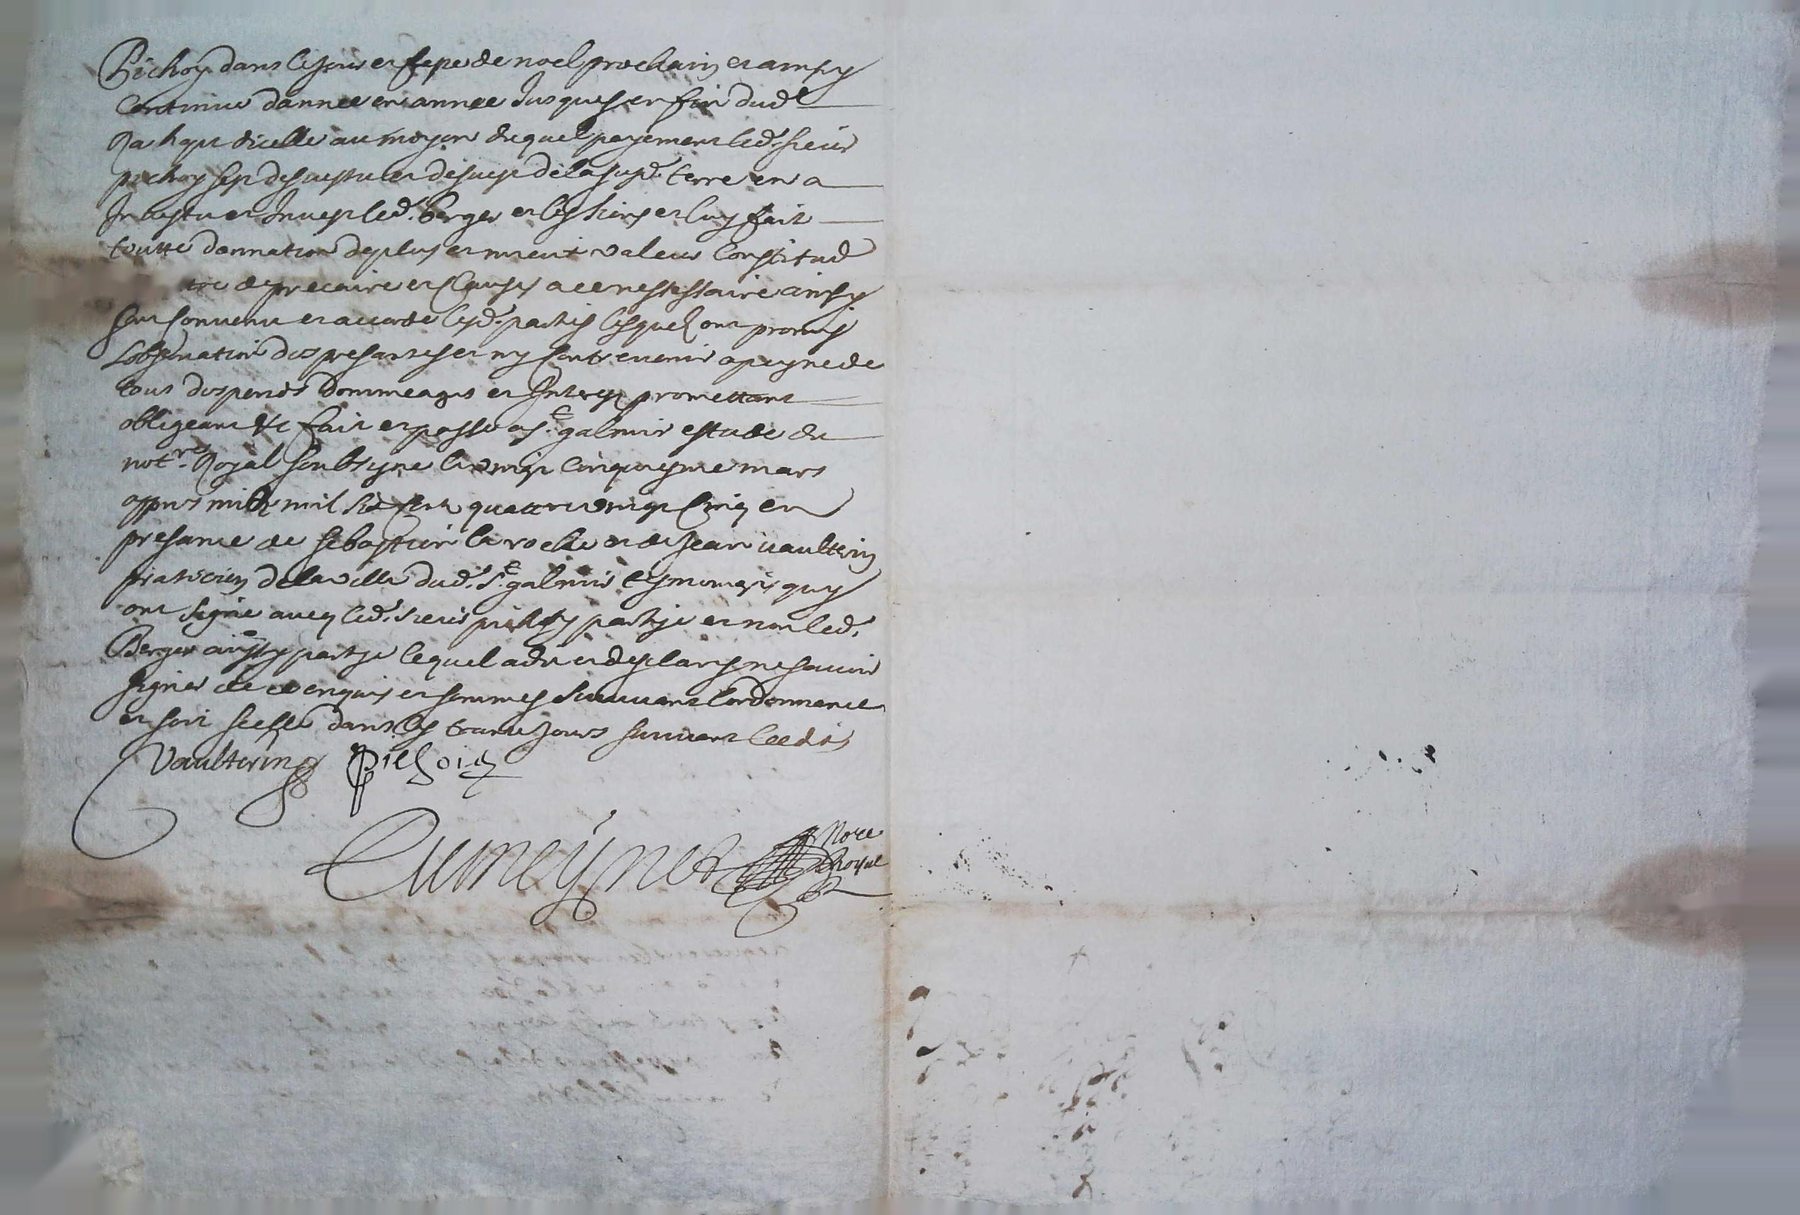 Pichoy dans le jour et feste de noel prochain et ainsy
Continue dannee en annee Jusques en fin dud
Rachapt dicelle au moyen duquel payement led. sieur
pichoy sest desvestu et desvest de la susd. terre en a
Investu et Invest led. berger et les siens et luy fait
toutte donnation de plus et mieux valeur Constitud
de precaire et Clauses a ce nessessaire ainsy
sont convenu et accorde lesd. parties lesquels ont promis
Lobservation des presantes et ny contrevenir a peyne de
tous despends dommeages et Interest promettant
obligeant &c fait et passe a St. galmier estude du
notre. Royal soubsigne le vingt cinquiesme mars
appres midy mil six cent quattre vingt cinq en
presance de sebastien la roche et de Jean vaultrin
praticien de la ville dud. St. galmier tesmoings quy
ont signe avecq led. sieur pichoy partye et non led.
Berger aussy partye lequel a dit et desclare ne savoir
signer de ce enquis et sommes suivant lordonnance
et soit scelle dans les trante jours suivant leedit
Vaultrin Pichois
Cumeynet Nore
Royal